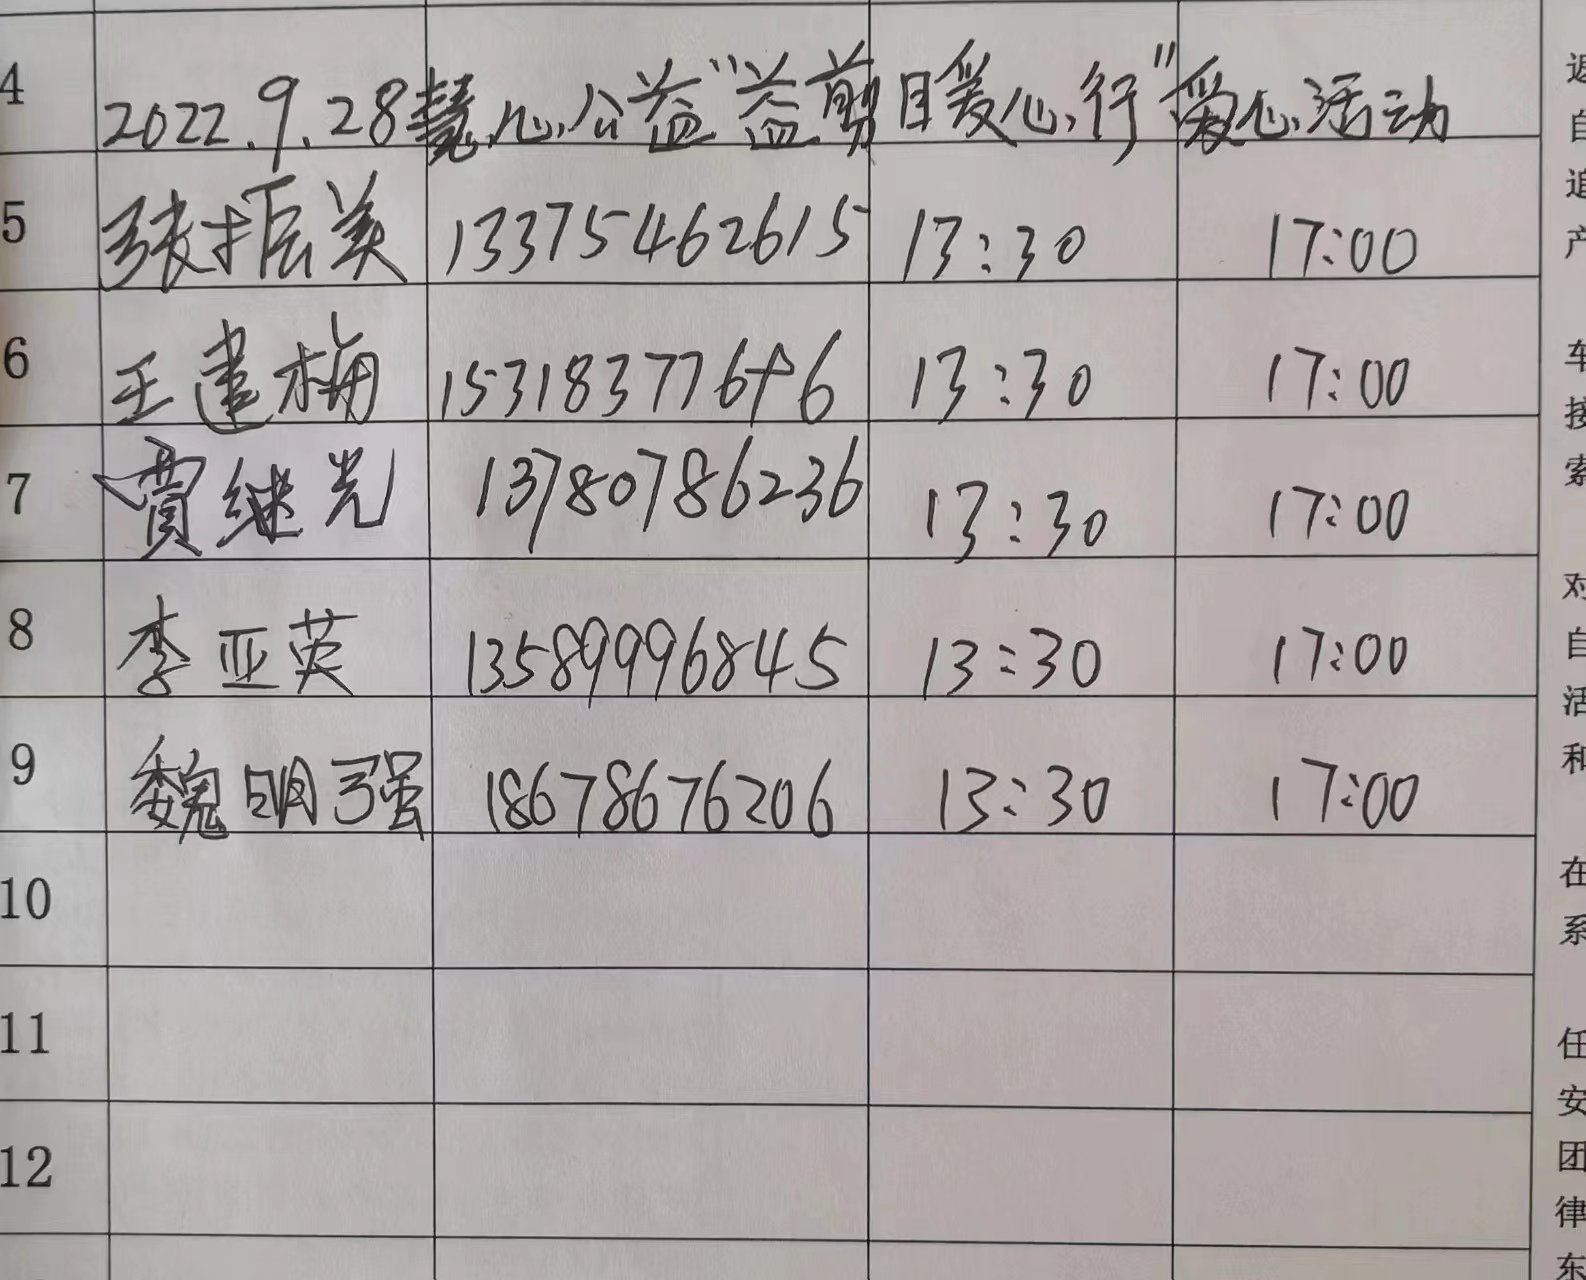 4 2022.9.28慧心公益"益剪暖心行"爱心活动 返
自
5 张振美 13375462615 13:30 17:00 追
产
6 王建梅 153183776 6 13:30 17:00 车
接
7 贾继光 13780786236 13:30 17:00 索
8 李亚英 13589996845 13:30 17:00 对
自
活
9 魏明强 18678676206 13:30 17:00 和
10 在
系
11 任
安
12 团
律
东